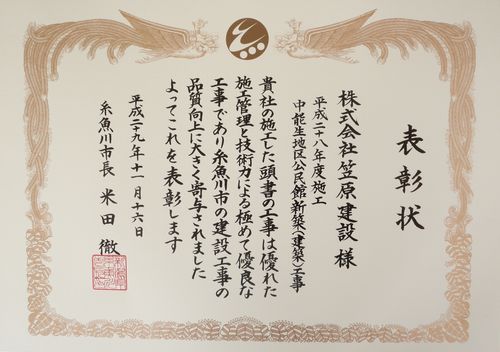 表彰状
株式会社笠原建設 様
平成二十八年度施工
中能生地区公民館新築(建築)工事
貴社の施工した頭書の工事は優れた
施工管理と技術力による極めて優良な
工事であり糸魚川市の建設工事の
品質向上に大きく寄与されました
よってこれを表彰します
平成二十九年十一月十六日
糸魚川市長 米田 徹